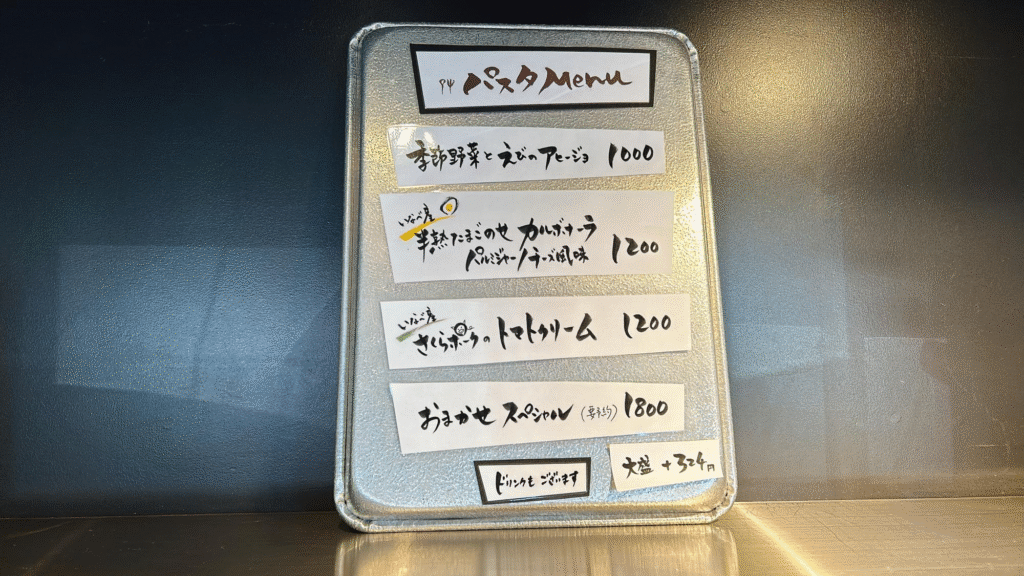 パスタ Menu
季節野菜と えびの アヒージョ 1000
いなべ産
半熟たまごのせ カルボナーラ
パルミジャーノチーズ風味 1200
いなべ産
さくらポークの トマトクリーム 1200
おまかせ スペシャル (要予約) 1800
大盛 +324円
ドリンクも ございます